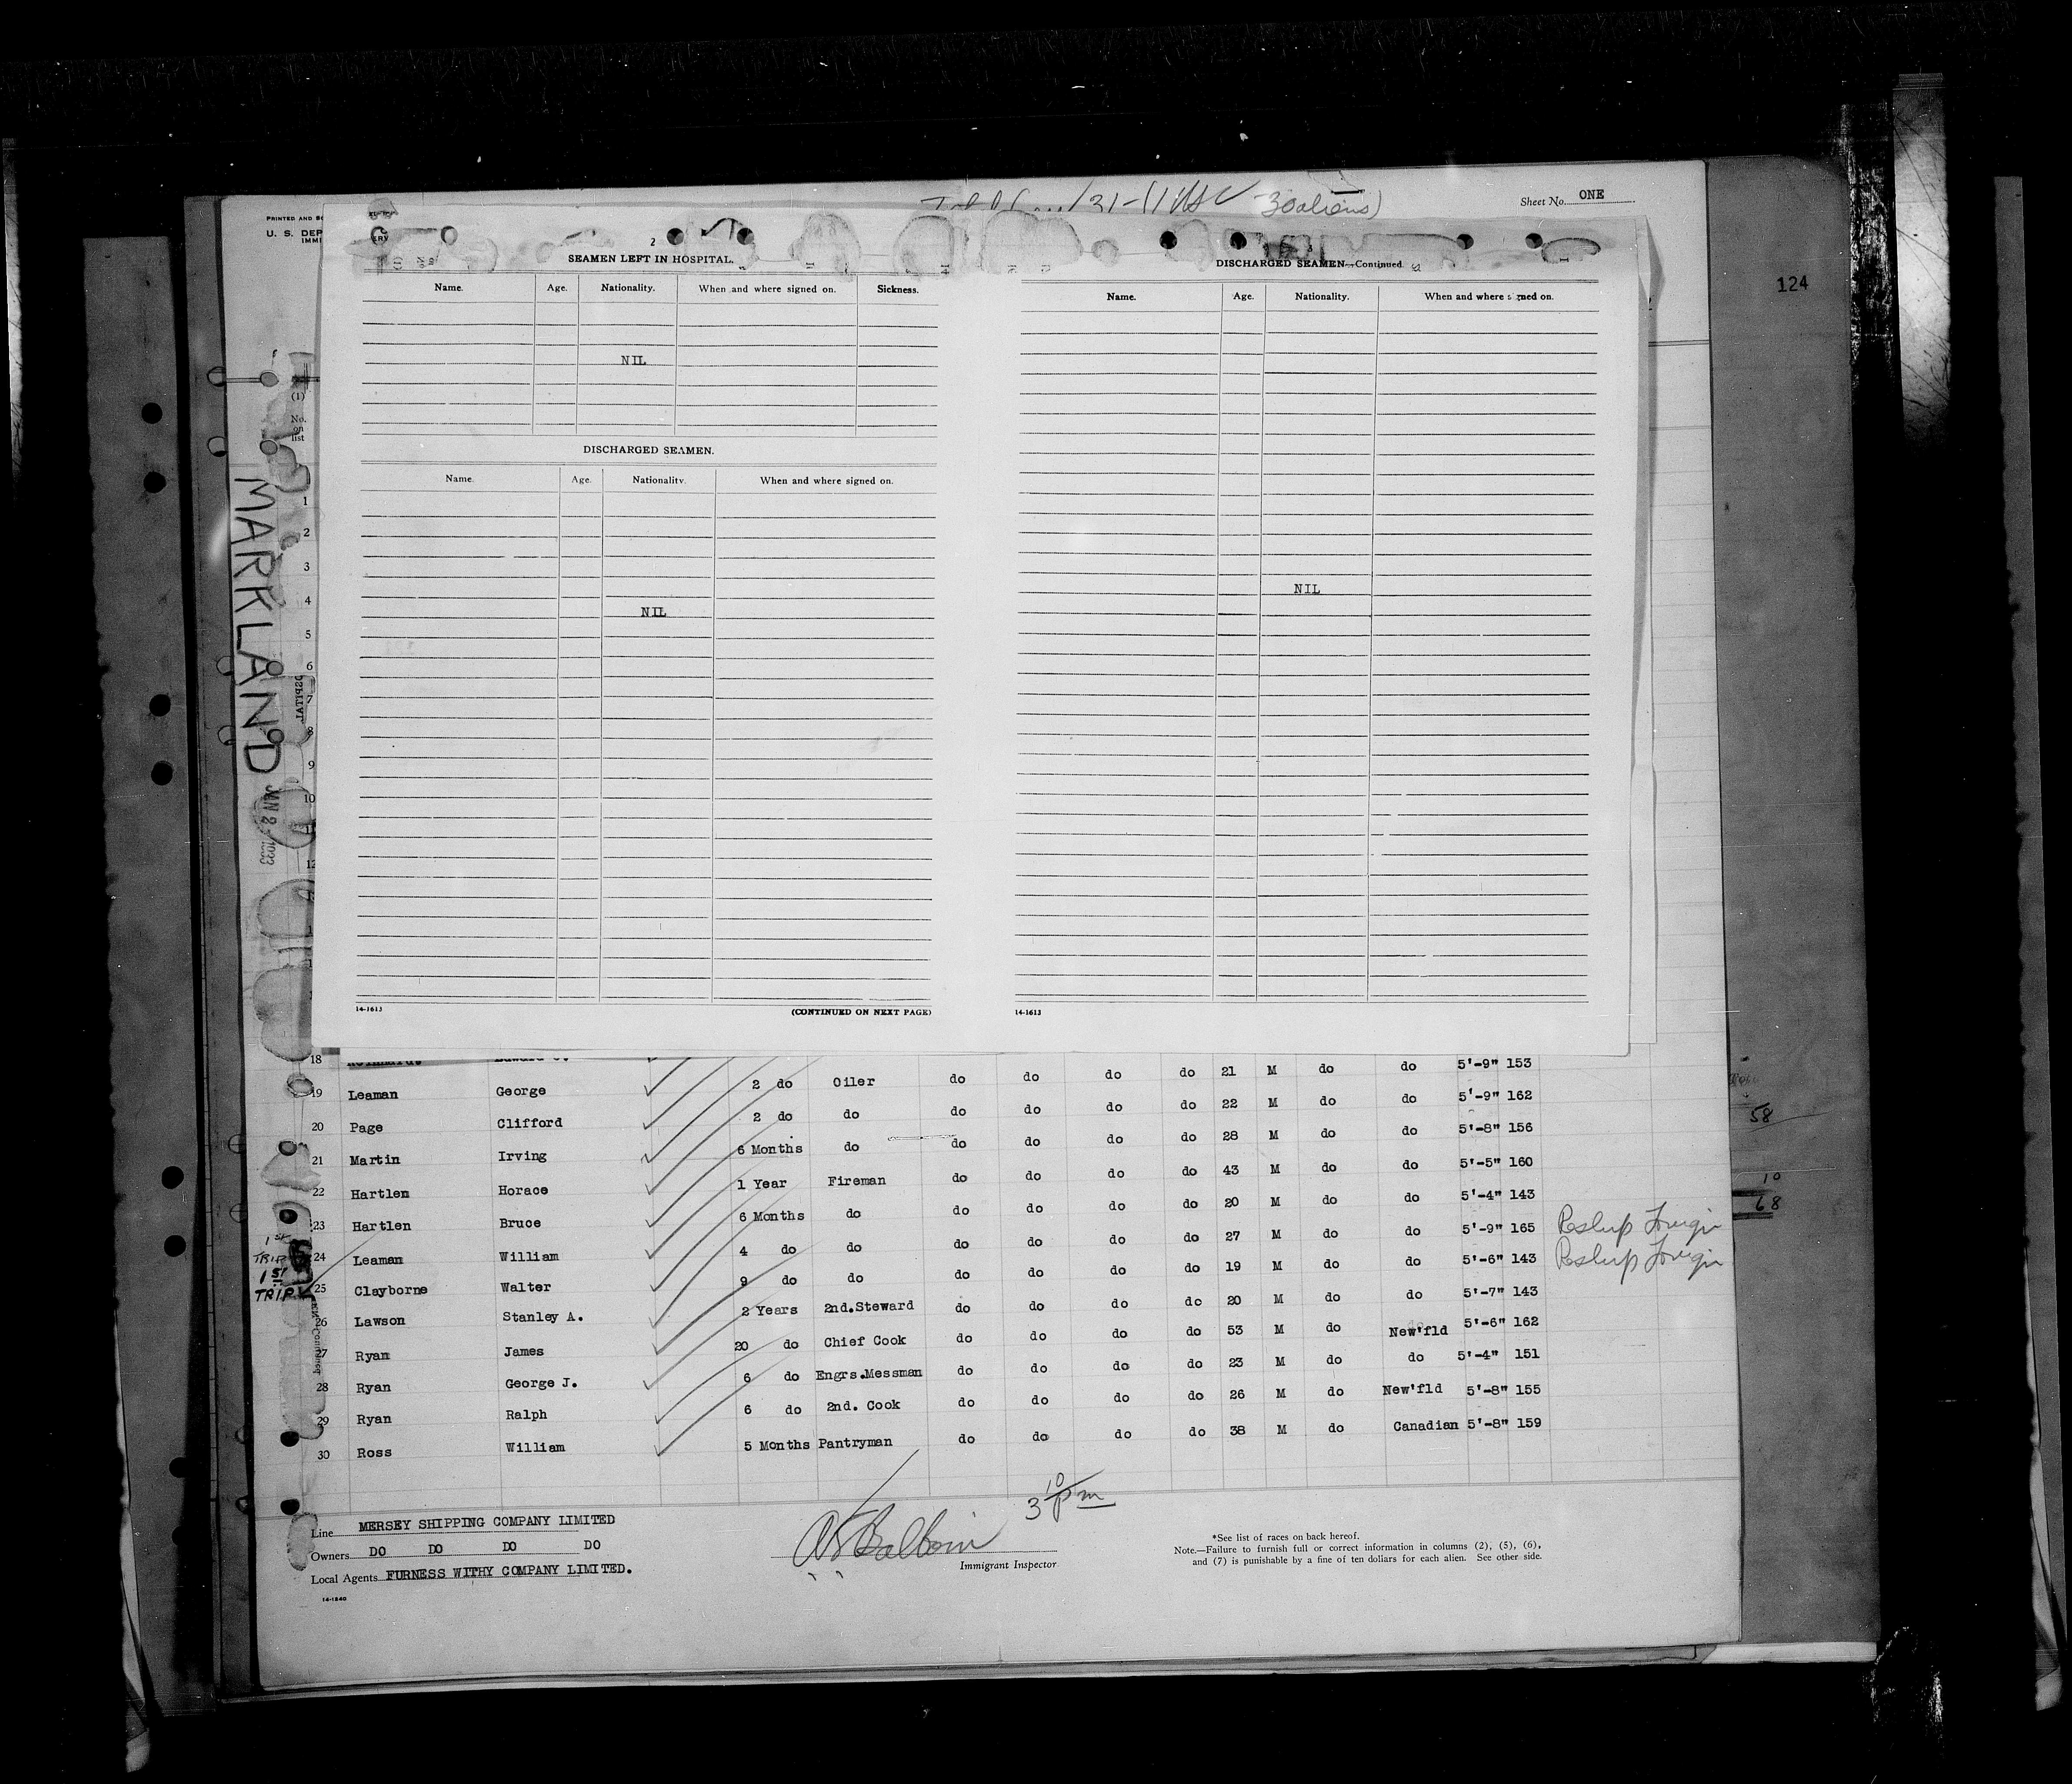 PRINTED AND
U. S. DEP
IMMI
30 aliens)
Sheet No. ONE
124
2
SEAMEN LEFT IN HOSPITAL.
Name. Age. Nationality. When and where signed on. Sickness.
NIL
DISCHARGED SEAMEN.
Name. Age. Nationality. When and where signed on.
NIL
14-1613
(CONTINUED ON NEXT PAGE)
3
DISCHARGED SEAMEN—Continued
Name. Age. Nationality. When and where signed on.
NIL
14-1613
(1)
No.
on
list
1
2
3
4
5
6
7
8
9
10
12
MARKLAND
JAN 2
18 5'-9" 153
19 Leaman George 2 do Oiler do do do do 21 M do do 5'-9" 162
20 Page Clifford 2 do do do do do do 22 M do do 5'-8" 156
21 Martin Irving 6 Months do do do do do 28 M do do 5'-5" 160
22 Hartlen Horace 1 Year Fireman do do do do 43 M do do 5'-4" 143
23 Hartlen Bruce 6 Months do do do do do 20 M do do 5'-9" 165
24 Leaman William 4 do do do do do do 27 M do do 5'-6" 143
25 Clayborne Walter 9 do do do do do do 19 M do do 5'-7" 143
26 Lawson Stanley A. 2 Years 2nd.Steward do do do do 20 M do do 5'-6" 162
27 Ryan James 20 do Chief Cook do do do do 53 M do New'fld 5'-4" 151
28 Ryan George J. 6 do Engrs.Messman do do do do 23 M do do 5'-8" 155
29 Ryan Ralph 6 do 2nd. Cook do do do do 26 M do New'fld 5'-8" 159
30 Ross William 5 Months Pantryman do do do do 38 M do Canadian
1st
TRIP
1st
TRIP
58
10
68
3 10 pm
Line MERSEY SHIPPING COMPANY LIMITED
Owners DO DO DO DO
Local Agents FURNESS WITHY COMPANY LIMITED.
14-1240
Immigrant Inspector
*See list of races on back hereof.
Note.—Failure to furnish full or correct information in columns (2), (5), (6),
and (7) is punishable by a fine of ten dollars for each alien. See other side.